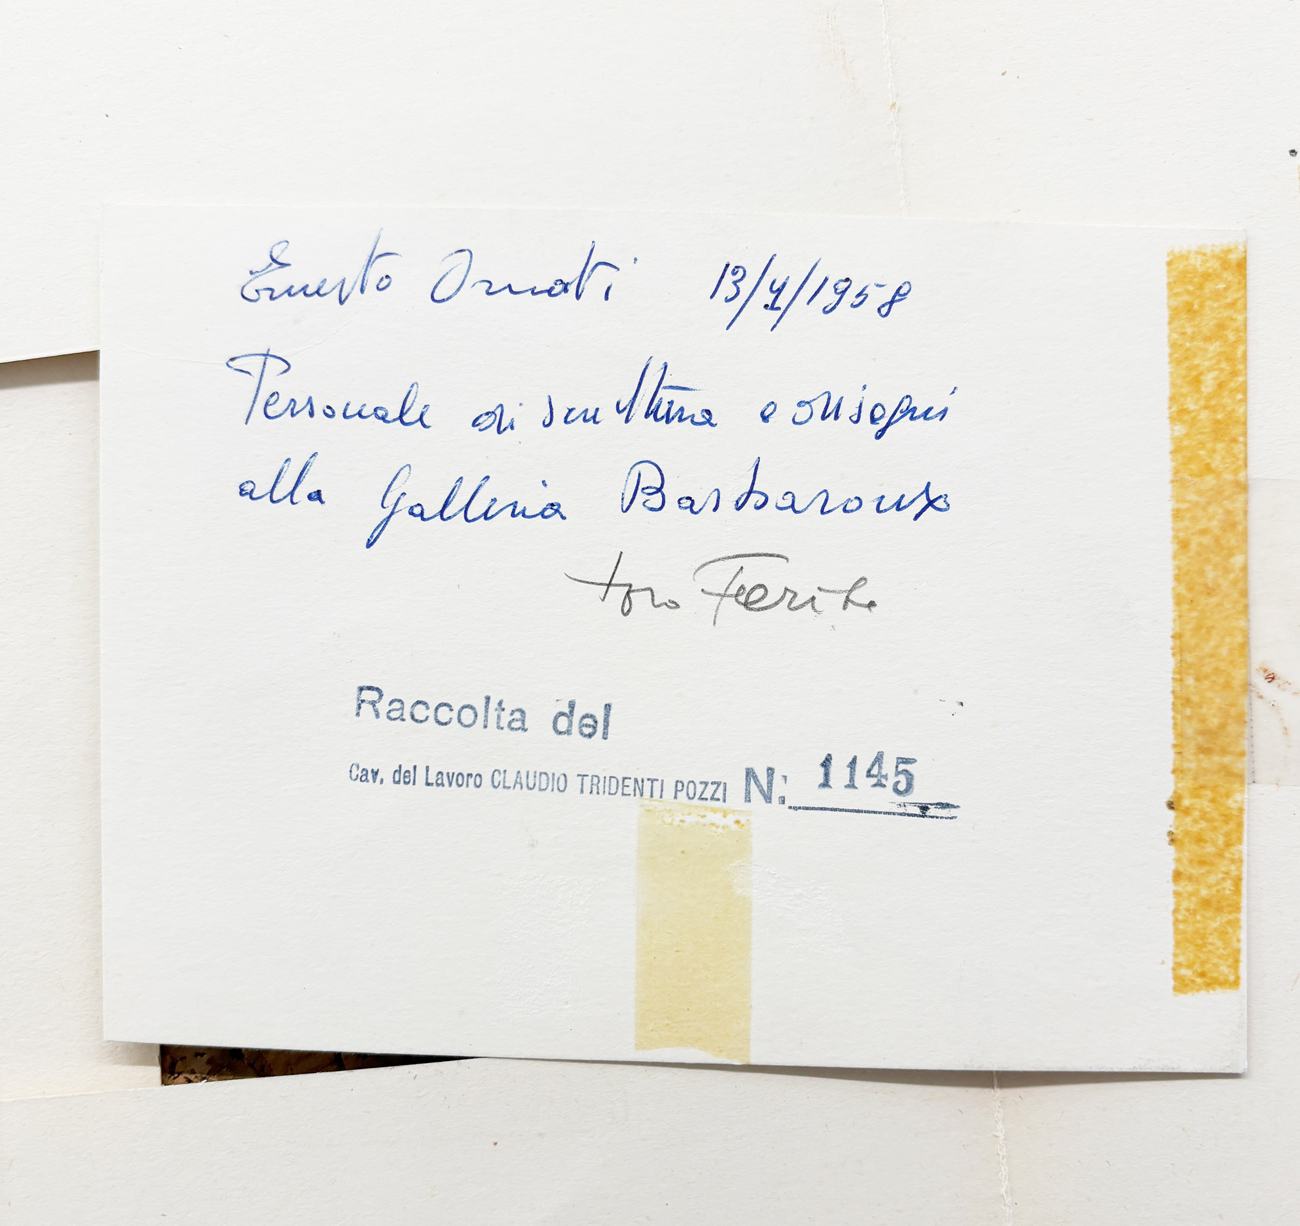 Ernesto Ornati 13/1/1958
Personale di scultura e disegni
alla Galleria Barbaroux
Raccolta del
Cav. del Lavoro CLAUDIO TRIDENTI POZZI N: 1145